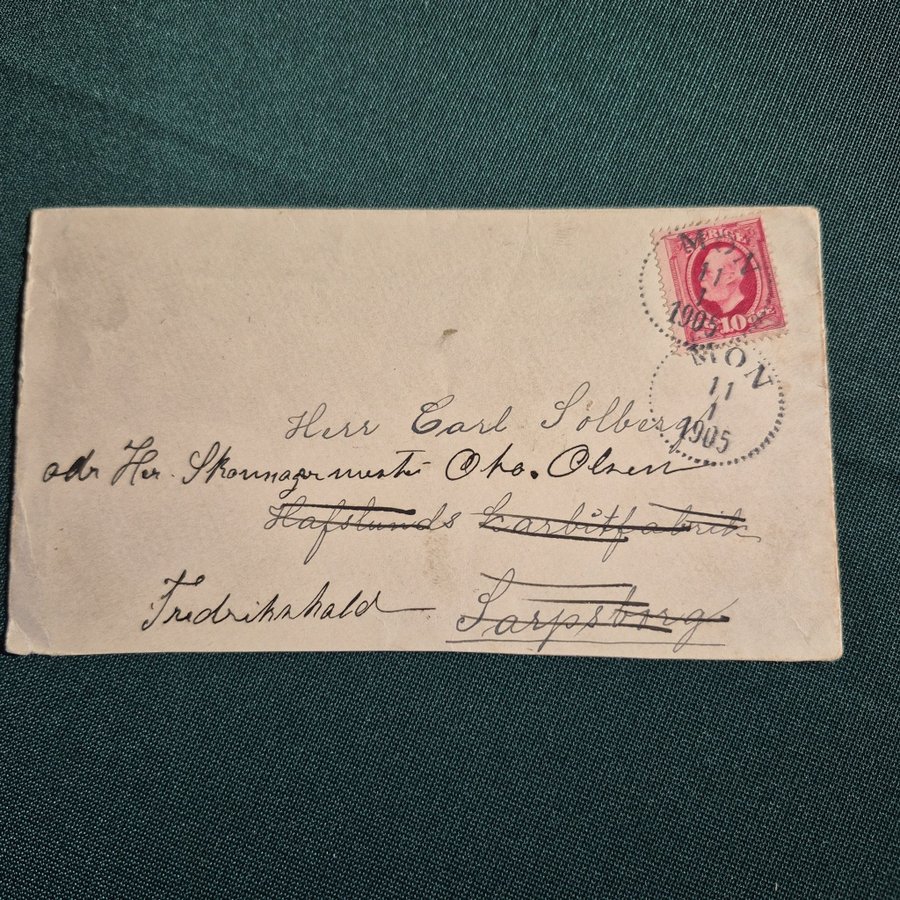 SVERIGE
10 ÖRE
MON
11
1
1905
MON
11
1
1905
Herr Carl Solberg
adr Her. Skomagermester Oto. Olsen
Hafslunds Karbitfabrik
Fredrikshald
Sarpsborg